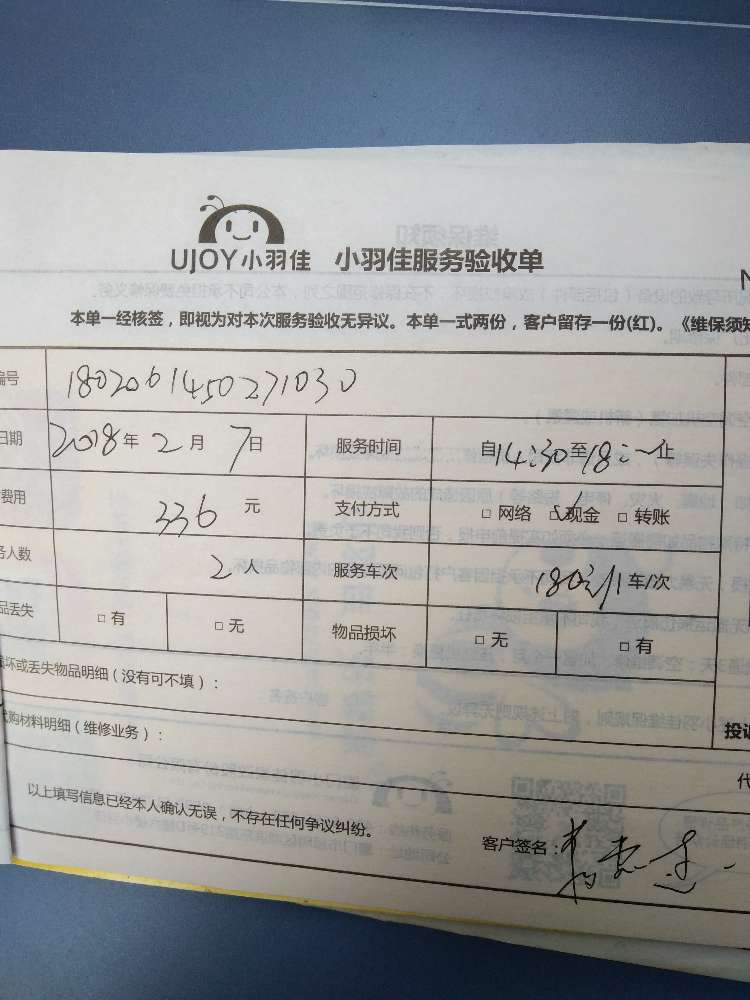 UJOY小羽佳 小羽佳服务验收单
本单一经核签，即视为对本次服务验收无异议。本单一式两份，客户留存一份(红)。《维保须知
编号 1802061450271030
日期 2018年 2月 7日 服务时间 自14:30至18:一止
费用 336 元 支付方式 □ 网络 ☑现金 □ 转账
务人数 2人 服务车次 车/次
品丢失 □ 有 □ 无 物品损坏 □ 无 □ 有
损坏或丢失物品明细（没有可不填）：
代购材料明细（维修业务）：
投诉
代
以上填写信息已经本人确认无误，不存在任何争议纠纷。
客户签名：